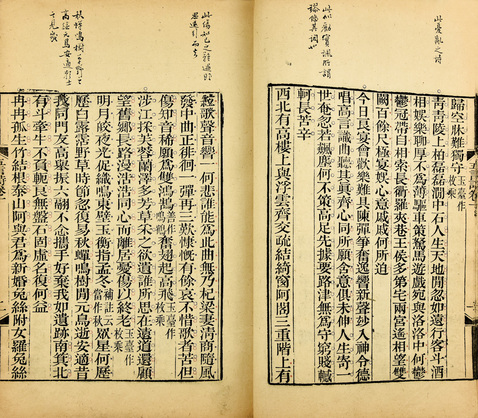 此憂亂之詩
歸空牀難獨守 玉臺作枚乘
青青陵上柏磊磊澗中石人生天地間忽如遠行客斗酒
相娛樂聊厚不為薄驅車策駑馬遊戲宛與洛洛中何鬱
鬱冠帶自相索長衢羅夾巷王侯多第宅兩宮遙相望雙
闕百餘尺極宴娛心意戚戚何所迫
此似勸實諷所謂
今日良宴會歡樂難具陳彈箏奮逸響新聲妙入神令德
唱高言識曲聽其真齊心同所願含意俱未伸人生寄一
世奄忽若飆塵何不策高足先據要路津無為守窮賤轗
軻長苦辛
西北有高樓上與浮雲齊交疏結綺窗阿閣三重階上有
此傷知己之難遇
思遠引而去
絃歌聲音響一何悲誰能為此曲無乃杞梁妻清商隨風
發中曲正徘徊一彈再三歎慷慨有餘哀不惜歌者苦但
傷知音稀願為雙鴻鵠奮翅起高飛 玉臺作枚乘
涉江采芙蓉蘭澤多芳草采之欲遺誰所思在遠道還顧
望舊鄉長路漫浩浩同心而離居憂傷以終老 玉臺作枚乘
明月皎夜光促織鳴東壁玉衡指孟冬 補註云當作秋 眾星何歷
歷白露霑野草時節忽復易秋蟬鳴樹間元鳥逝安適昔
我同門友高舉振六翮不念攜手好棄我如遺跡南箕北
有斗牽牛不負軛良無盤石固虛名復何益
冉冉孤生竹結根泰山阿與君為新婚兔絲附女蘿兔絲